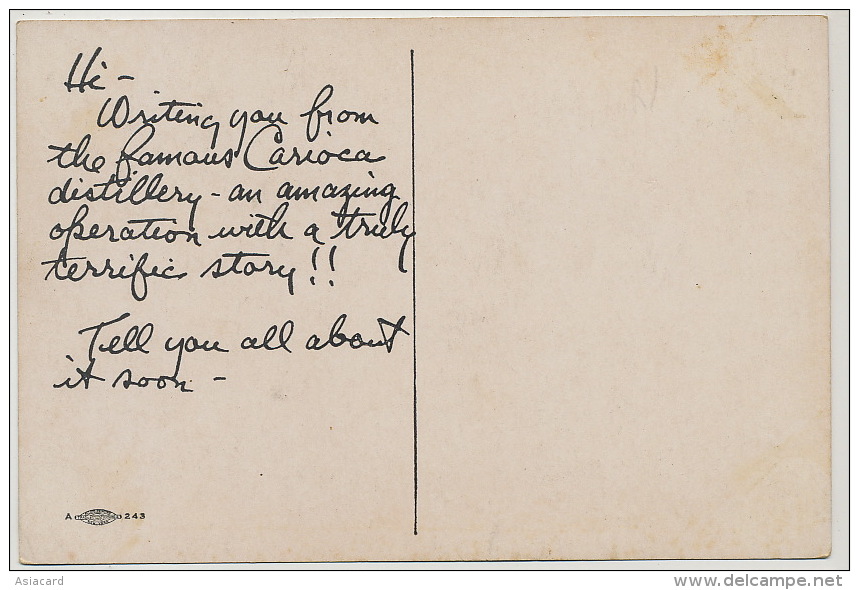 Hi -
Writing you from
the famous Carioca
distillery - an amazing
operation with a truly
terrific story!!
Tell you all about
it soon -
A 243
Asiacard
www.delcampe.net